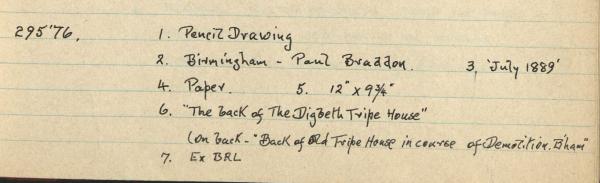 295'76. 1. Pencil Drawing
2. Birmingham - Paul Braddon. 3, 'July 1889'
4. Paper. 5. 12" x 9¾"
6. "The back of The Digbeth Tripe House"
(On back - "Back of Old Tripe House in course of Demolition. B'ham"
7. Ex BRL